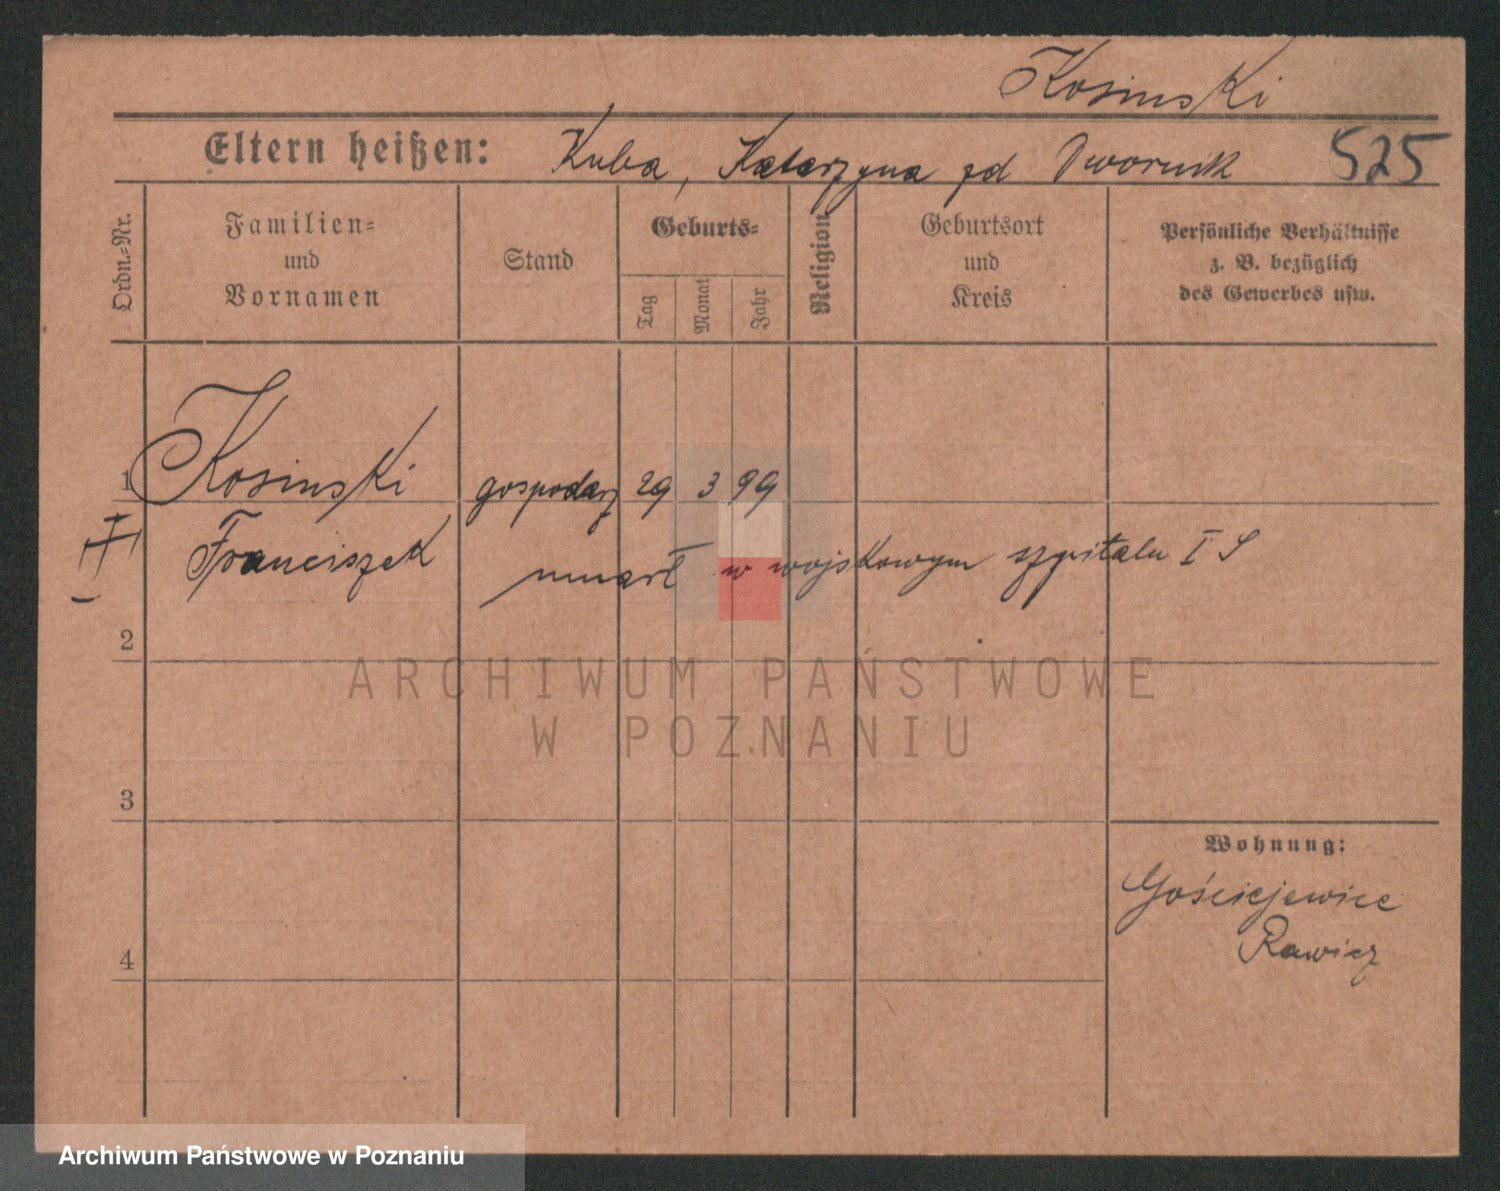 Kosinski
Eltern heißen: Kuba, Katarzyna zd Dwornik 525
Ordn.-Nr.
Familien-
und
Vornamen
Stand
Geburts-
Tag
Monat
Jahr
Religion
Geburtsort
und
Kreis
Persönliche Verhältnisse
z. B. bezüglich
des Gewerbes usw.
1 Kosinski gospodarz 29 3 99
Franciszek umarł w wojskowym szpitalu I S
2
ARCHIWUM PAŃSTWOWE
W POZNANIU
3
Wohnung:
Gościejewice
Rawicz
4
Archiwum Państwowe w Poznaniu